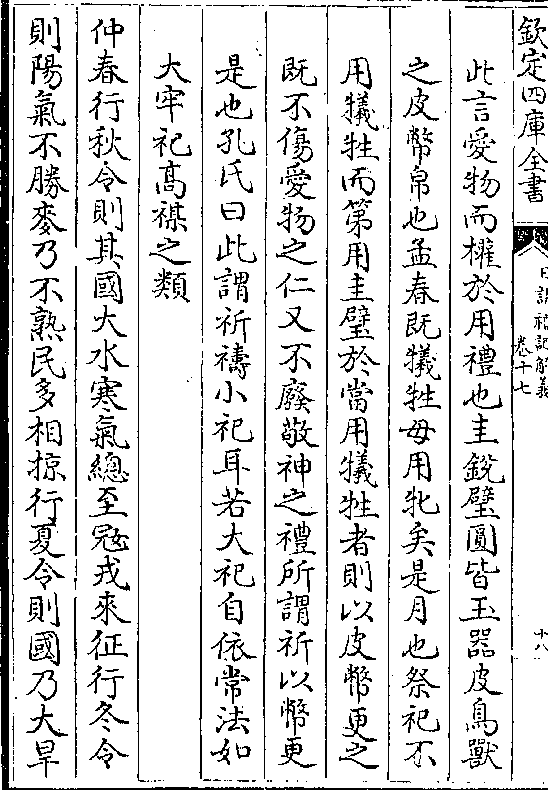 欽定四庫全書
日講禮記解義
卷十七
十八
此言愛物而權於用禮也圭銳璧圓皆玉器皮鳥獸
之皮幣帛也孟春既犧牲毋用牝矣是月也祭祀不
用犧牲而第用圭璧於當用犧牲者則以皮幣更之
既不傷愛物之仁又不廢敬神之禮所謂祈以幣更
是也孔氏曰此謂祈禱小祀耳若大祀自依常法如
大牢祀高禖之類
仲春行秋令則其國大水寒氣總至寇戎來征行冬令
則陽氣不勝麥乃不熟民多相掠行夏令則國乃大旱